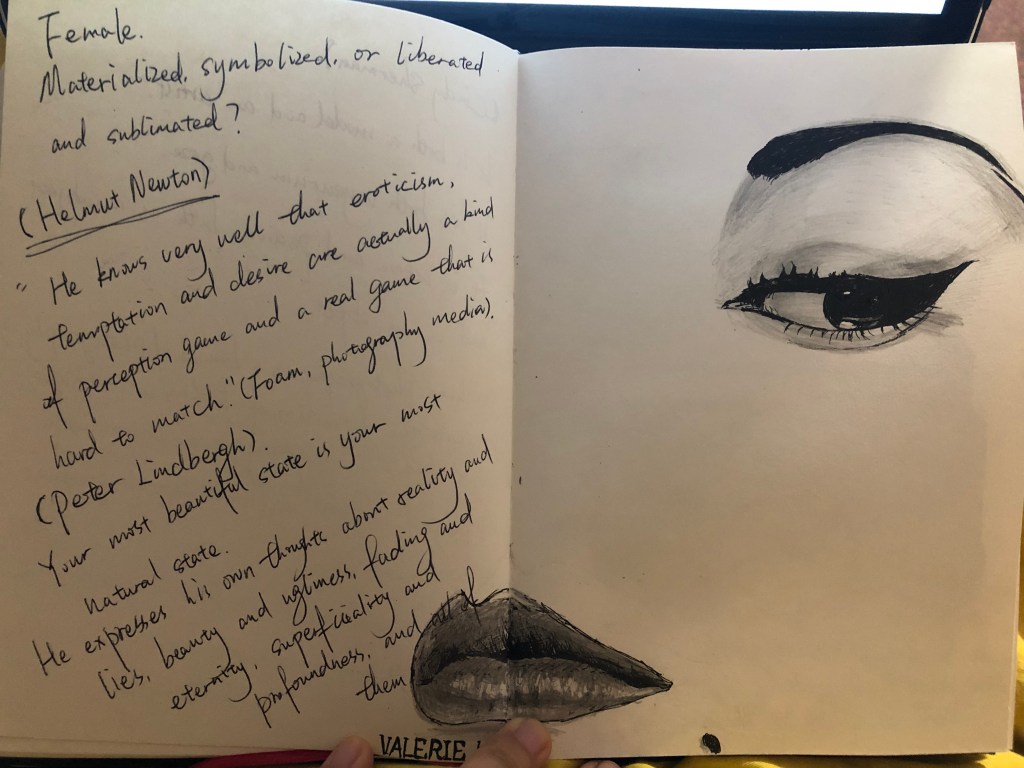 Female.
Materialized, symbolized, or liberated
and sublimated?
(Helmut Newton)
"He knows very well that eroticism,
temptation and desire are actually a kind
of perception game and a real game that is
hard to match." (Foam, photography media).
(Peter Lindbergh).
Your most beautiful state is your most
natural state.
He expresses his own thoughts about reality and
lies, beauty and ugliness, fading and
eternity, superficiality and
profoundness, and all of
them
VALERIE